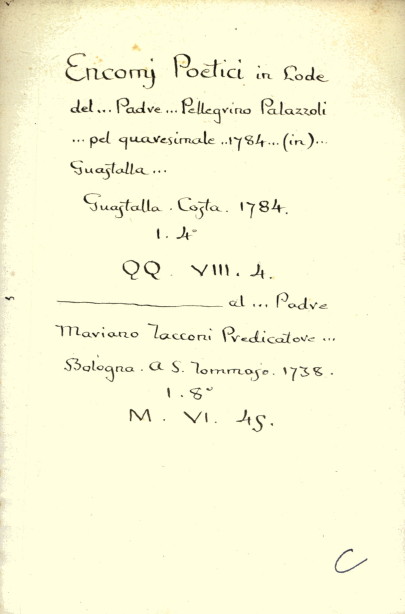 Encomj Poetici in Lode
del... Padre... Pellegrino Palazzoli
... pel quaresimale ..1784...(in)...
Guastalla...
Guastalla. Costa. 1784.
1. 4°
QQ. VIII. 4.
________ al ... Padre
Mariano Tacconi Predicatore ...
Bologna. A S. Tommaso. 1738.
1. 8°
M. VI. 45.
C